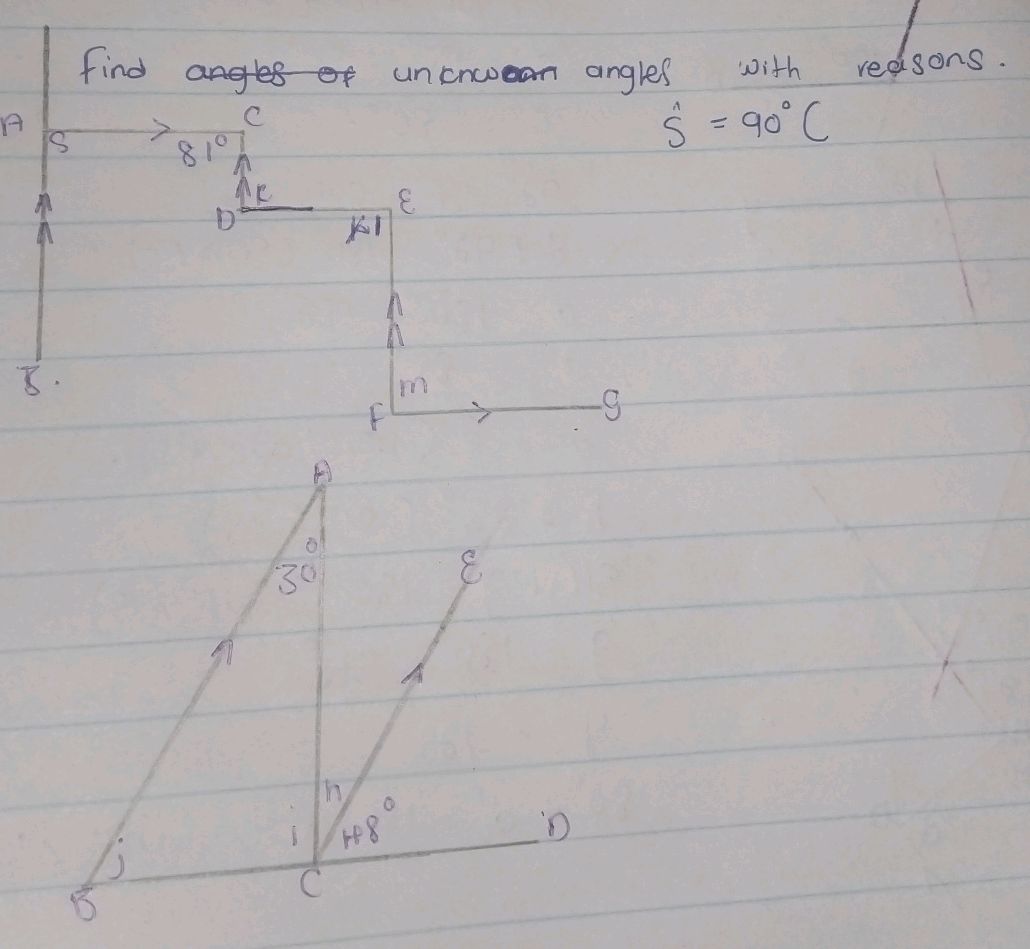 find angles of unknwoan angles with reasons.
ŝ = 90° C
A S 81° C
D K E
K1
B.
m
F g
A
30°
E
h
i 48° D
j
B C